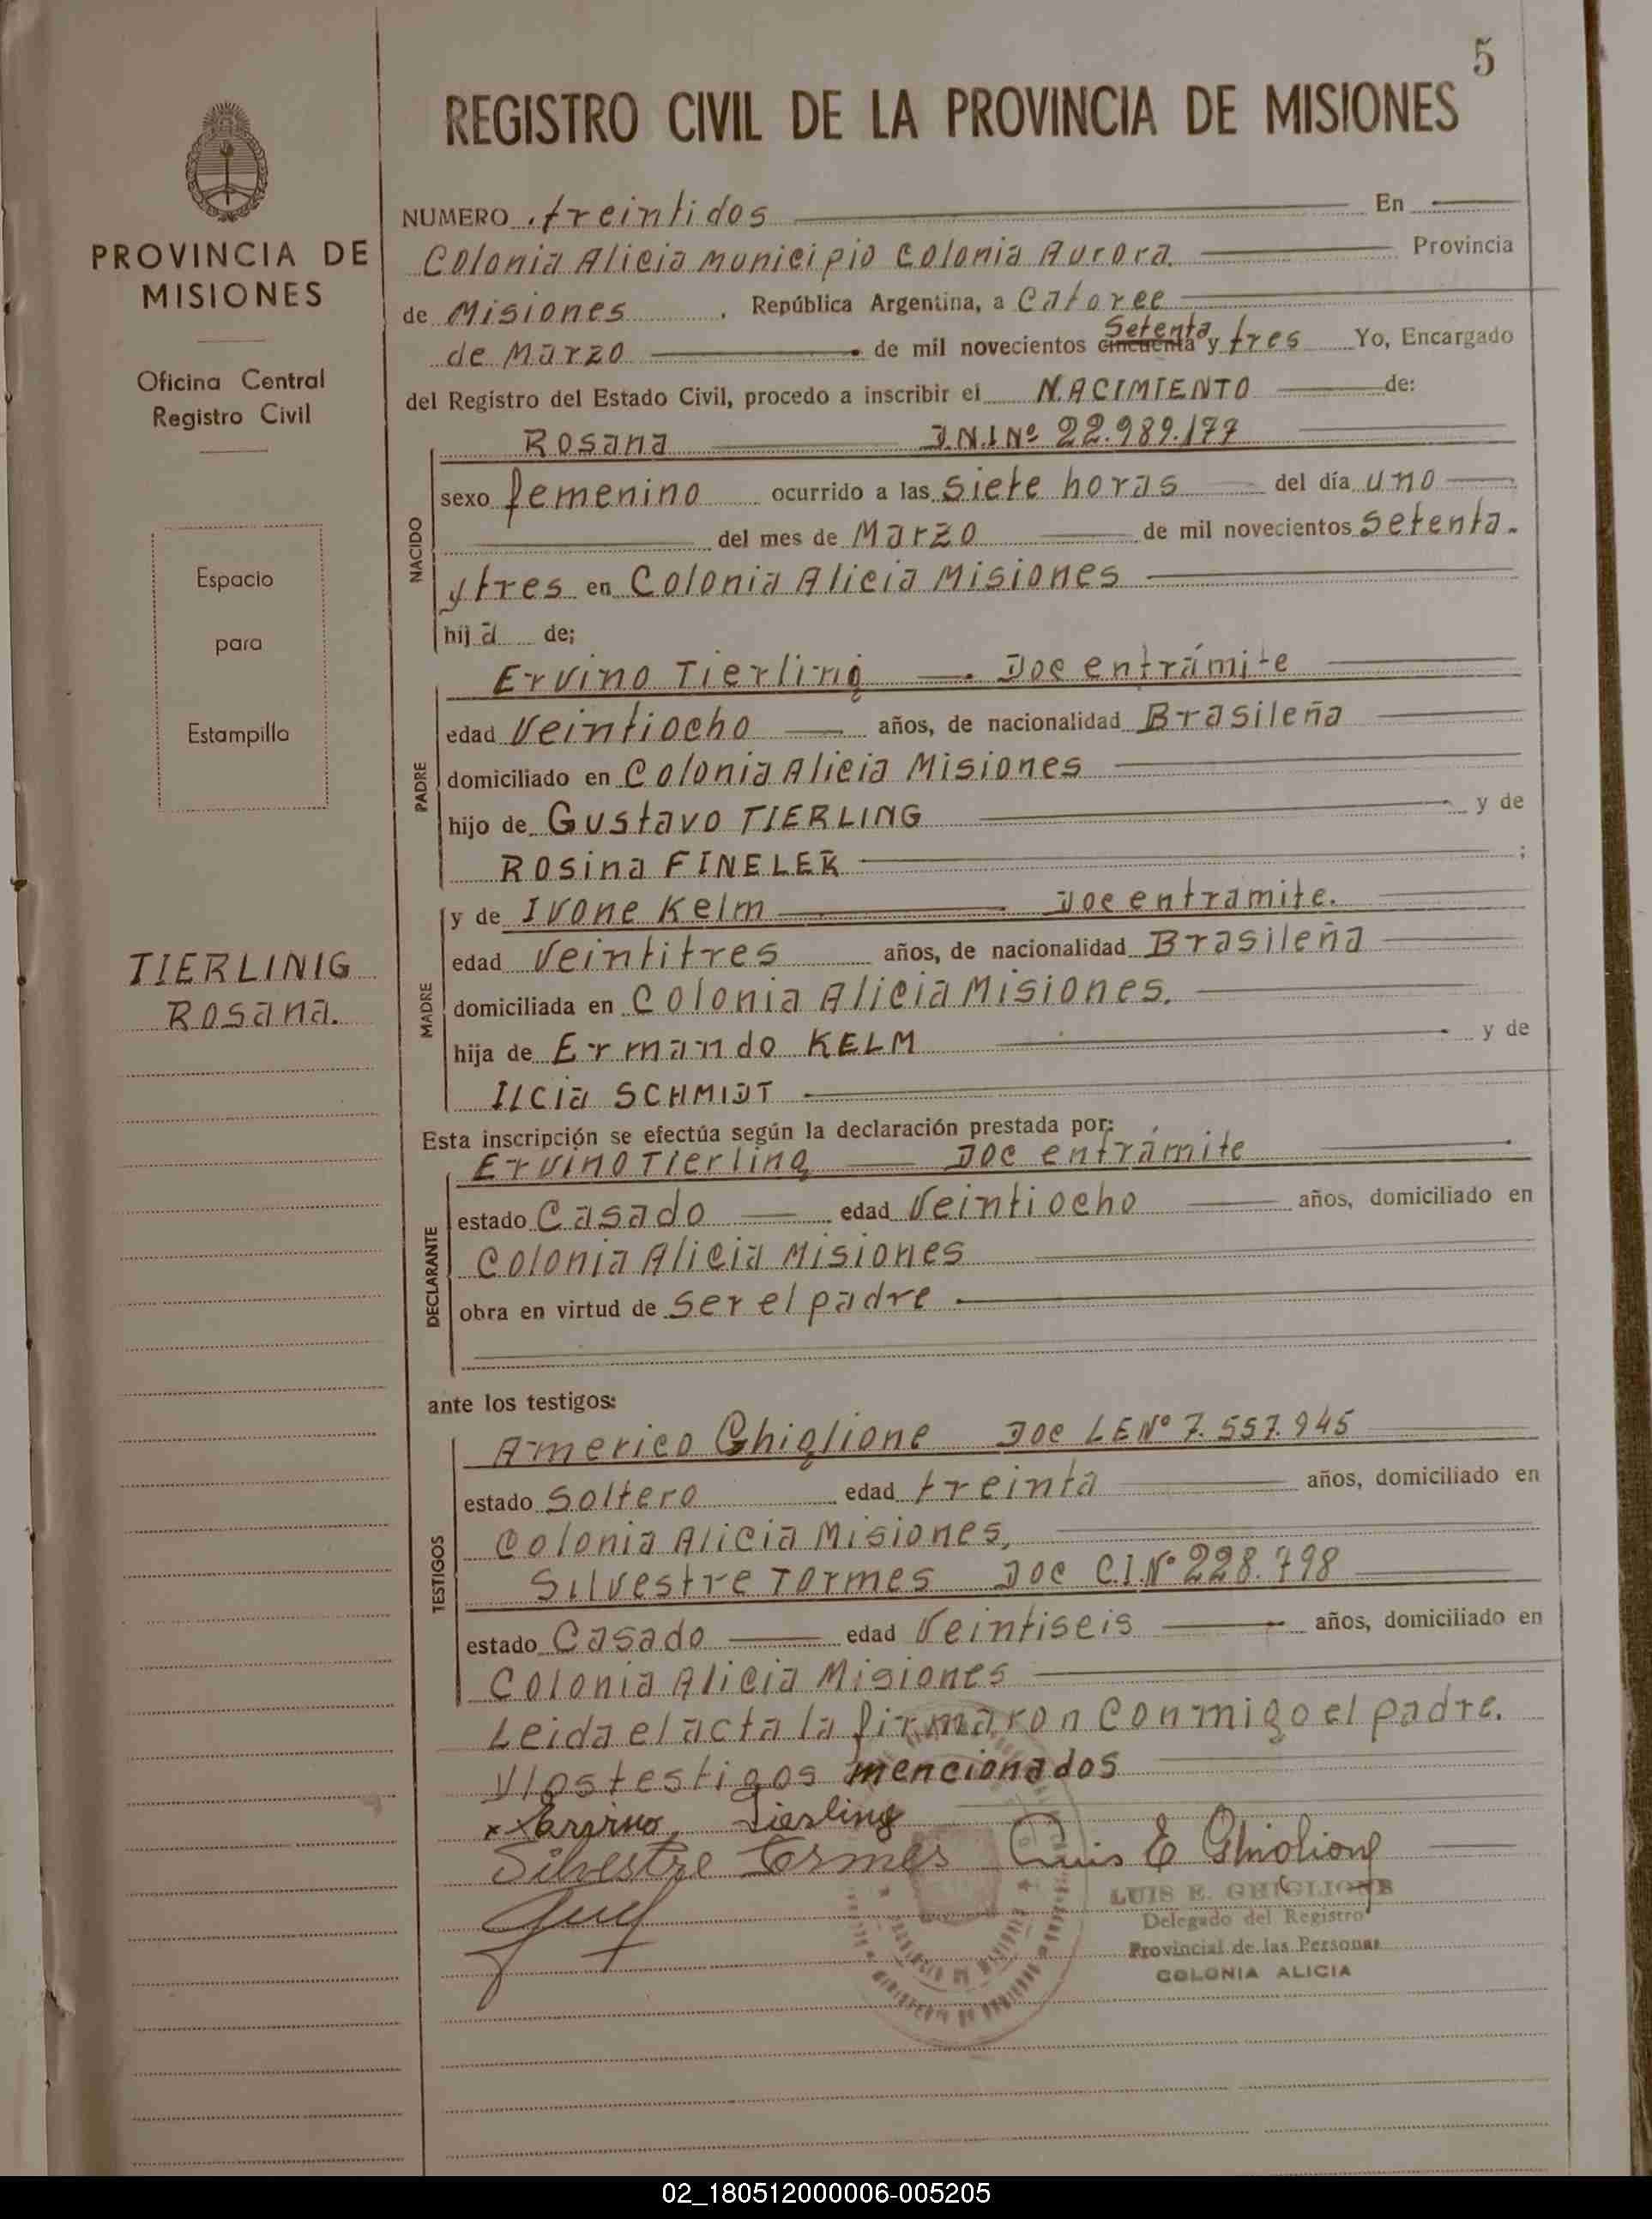 5
REGISTRO CIVIL DE LA PROVINCIA DE MISIONES
PROVINCIA DE
MISIONES
Oficina Central
Registro Civil
Espacio
para
Estampilla
TIERLINIG
Rosana.
NUMERO treintidos En
Colonia Alicia Municipio Colonia Aurora. Provincia
de Misiones, República Argentina, a Catorce
Setenta
de Marzo de mil novecientos cincuenta y tres Yo, Encargado
del Registro del Estado Civil, procedo a inscribir el NACIMIENTO de:
NACIDO
Rosana D.N.I Nº 22.989.177
sexo femenino ocurrido a las siete horas del día uno
del mes de Marzo de mil novecientos setenta
y tres en Colonia Alicia Misiones
hija de;
PADRE
Ervino Tierling Doc en trámite
edad Veintiocho años, de nacionalidad Brasileña
domiciliado en Colonia Alicia Misiones
hijo de Gustavo TIERLING y de
Rosina FINELER ;
MADRE
y de Ivone Kelm Doc en tramite.
edad Veintitres años, de nacionalidad Brasileña
domiciliada en Colonia Alicia Misiones.
hija de Ermando KELM y de
Ilcia SCHMIDT
Esta inscripción se efectúa según la declaración prestada por:
DECLARANTE
Ervino Tierling Doc en trámite
estado Casado edad Veintiocho años, domiciliado en
Colonia Alicia Misiones
obra en virtud de ser el padre
ante los testigos:
TESTIGOS
Americo Ghiglione Doc LE Nº 7.557.945
estado Soltero edad treinta años, domiciliado en
Colonia Alicia Misiones,
Silvestre Tormes Doc C.I.Nº 228.798
estado Casado edad Veintiseis años, domiciliado en
Colonia Alicia Misiones
Leida el acta la firmaron conmigo el padre.
y los testigos mencionados
x Tierling
Silvestre Tormes Luis E Ghiglione
LUIS E. GHIGLIONE
Delegado del Registro
Provincial de las Personas
COLONIA ALICIA
02_180512000006-005205